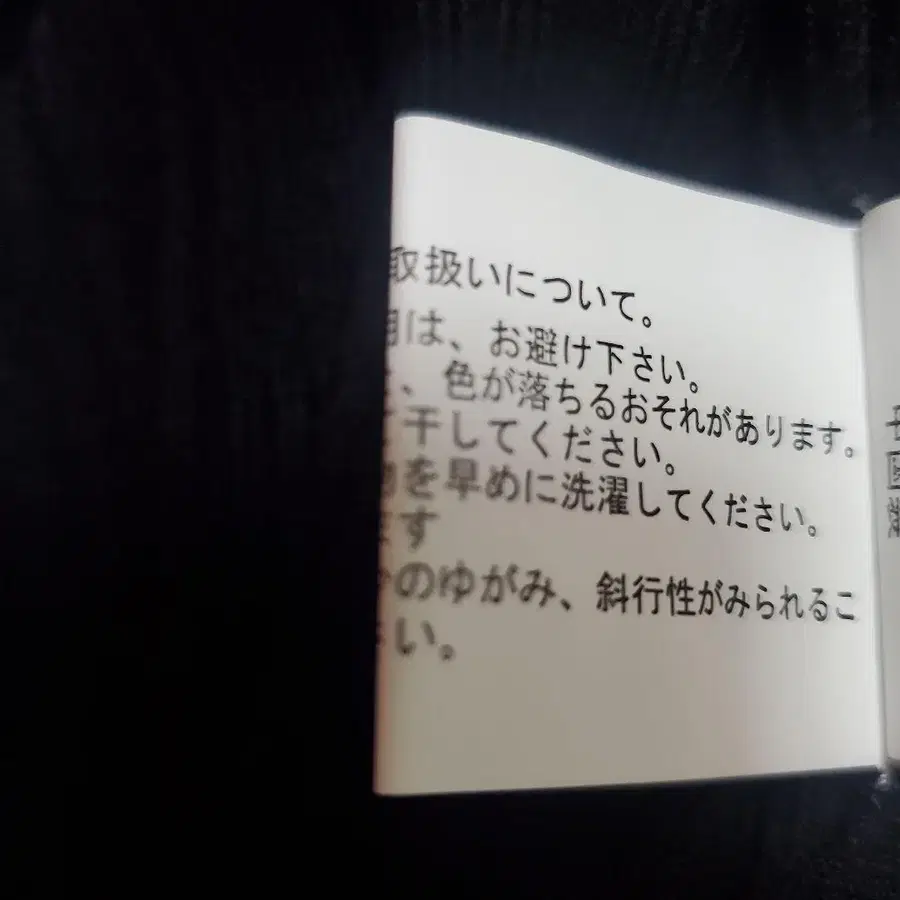 取扱いについて。
は、お避け下さい。
、色が落ちるおそれがあります。
干してください。
を早めに洗濯してください。
ます
のゆがみ、斜行性がみられるこ
い。